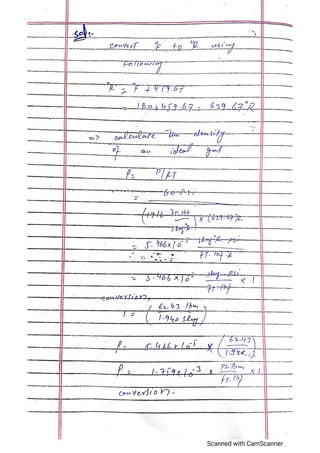 Soln.
convert °F to °R using
Following
°R = °F + 459.67
= 180+459.67 = 639.67°R
=> calculate the density
of an ideal gas
ρ = P/RT
= 60 Psi
(1716 ft.lbf / slug°R) x (639.67°R)
= 5.466x10⁻⁵ slug°R psi / ft.lbf.°R
= 5.466x10⁻⁵ slug-psi / ft.lbf x 1
conversion,
1 = (62.43 lbm / 1.940 slug)
ρ = 5.466x10⁻⁵ x (62.43 / 1.940)
ρ = 1.759x10⁻³ x psi lbm / ft.lbf x 1
conversion-
Scanned with CamScanner